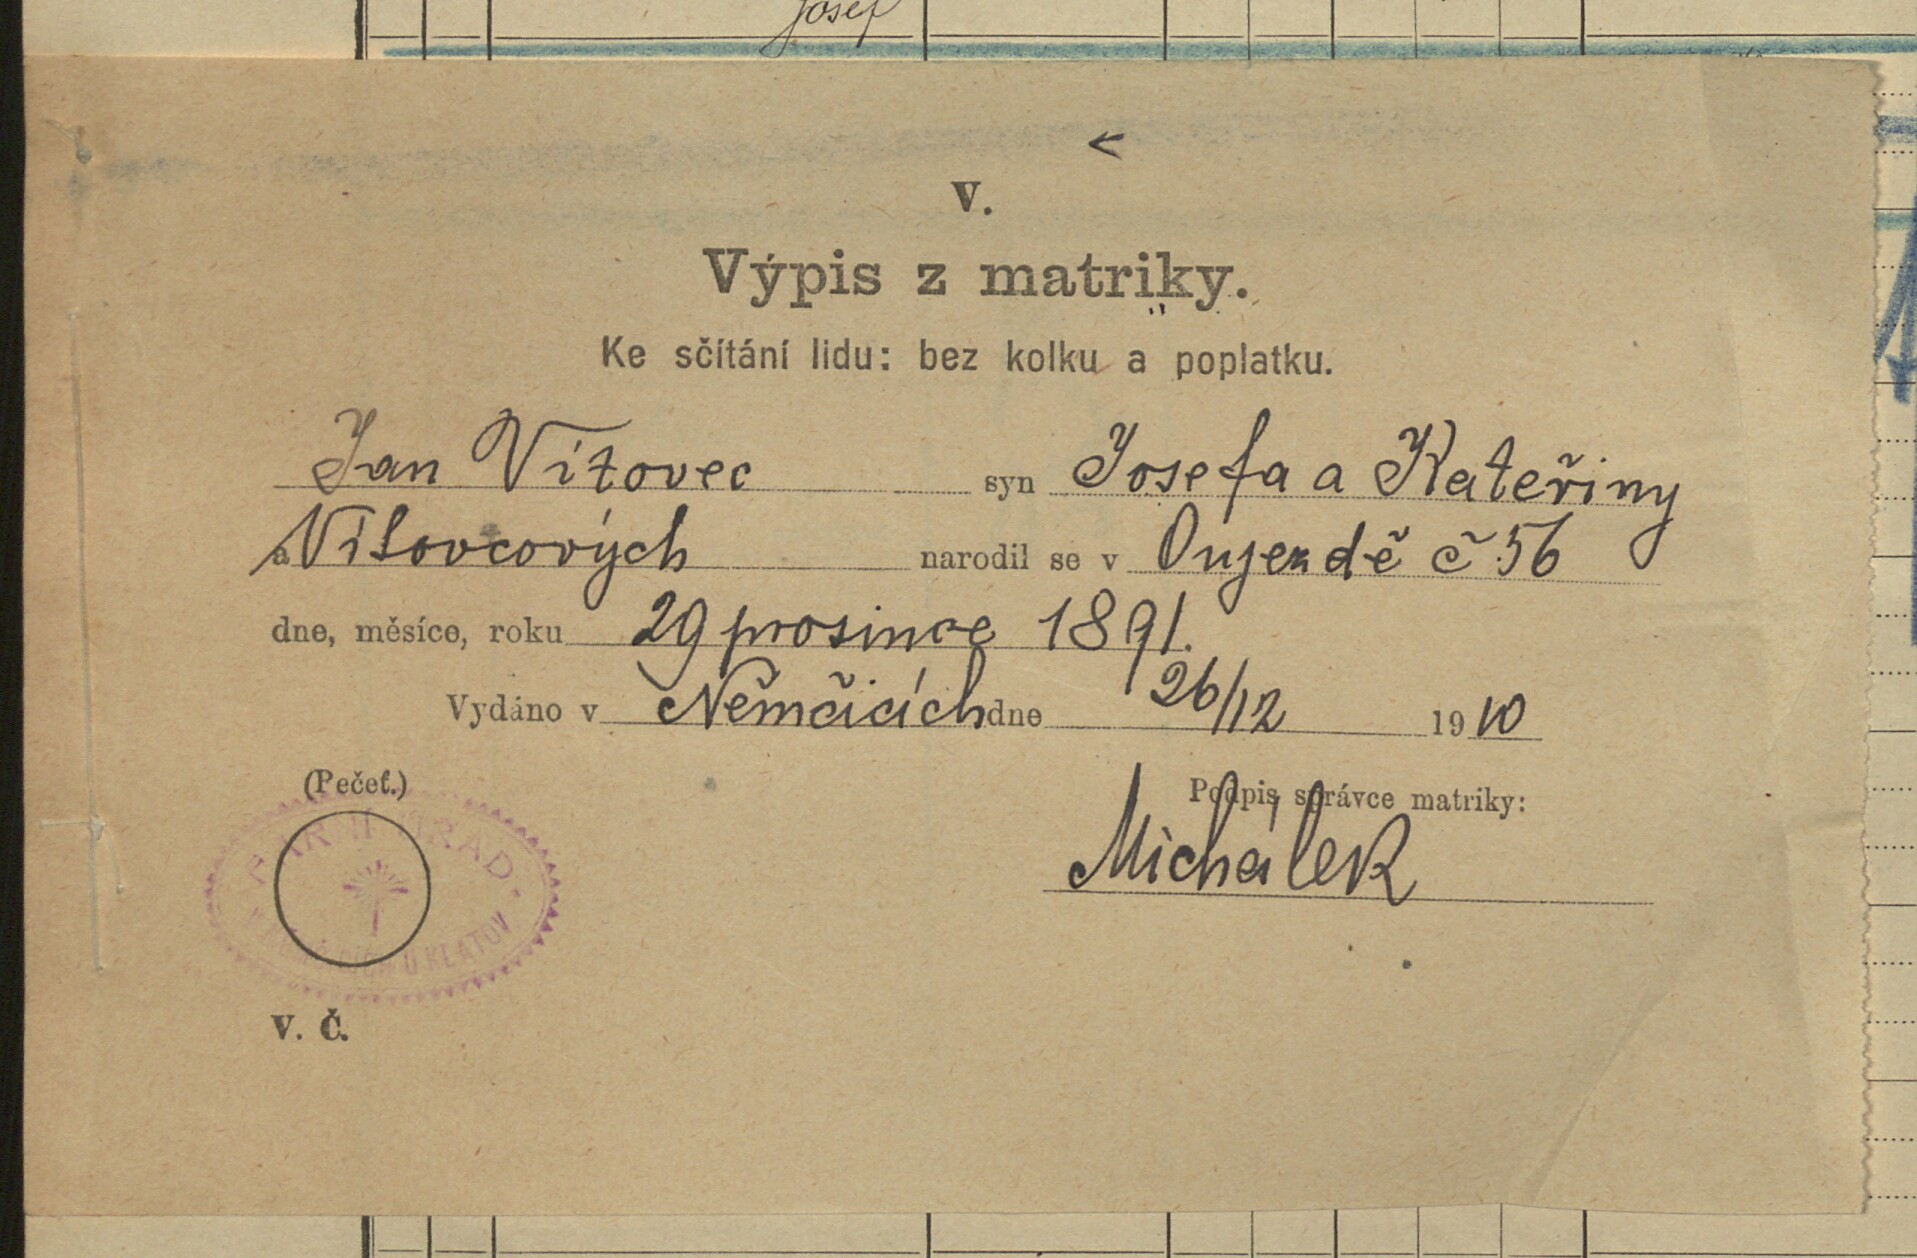 Josef
V.
Výpis z matriky.
Ke sčítání lidu: bez kolku a poplatku.
Jan Vítovec syn Josefa a Kateřiny
a Vítovcových narodil se v Oujezdě č 56
dne, měsíce, roku 29 prosince 1891.
Vydáno v Němčicích dne 26/12 1910
(Pečeť.)
Podpis správce matriky:
Michálek
FAR Ú ŘAD
U KLATOV
V. Č.